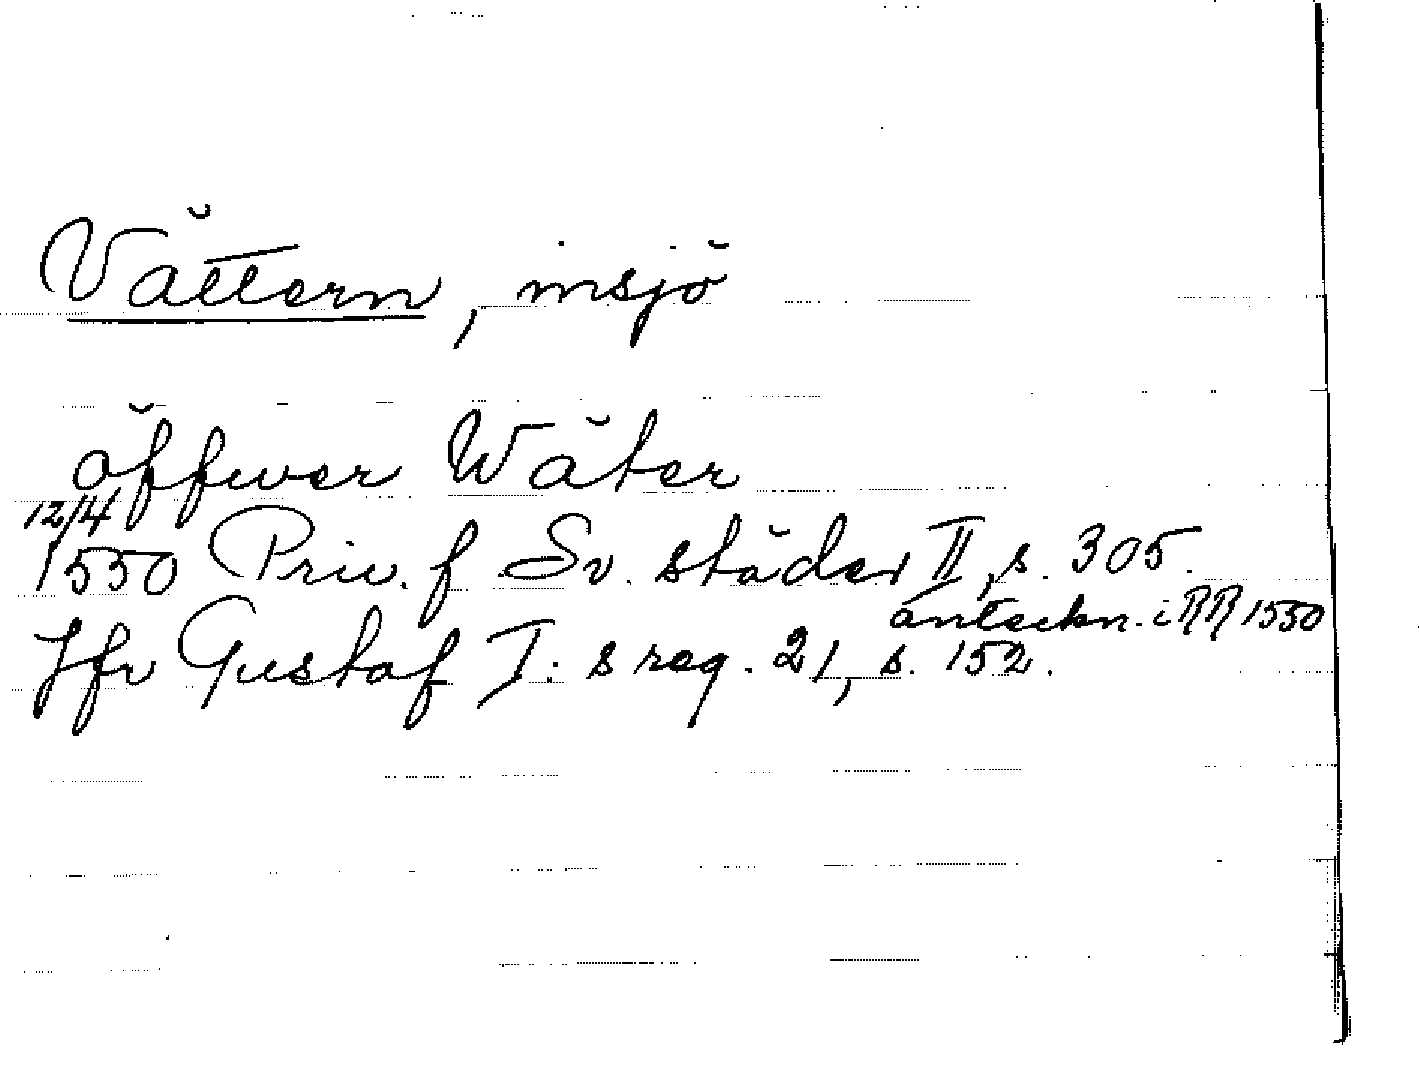 Vättern, insjö
öffwer Wäter
12/4
1550 Priv. f Sv. städer II, s. 305.
anteckn. i RR 1550
Jfr Gustaf I:s reg. 21, s. 152.